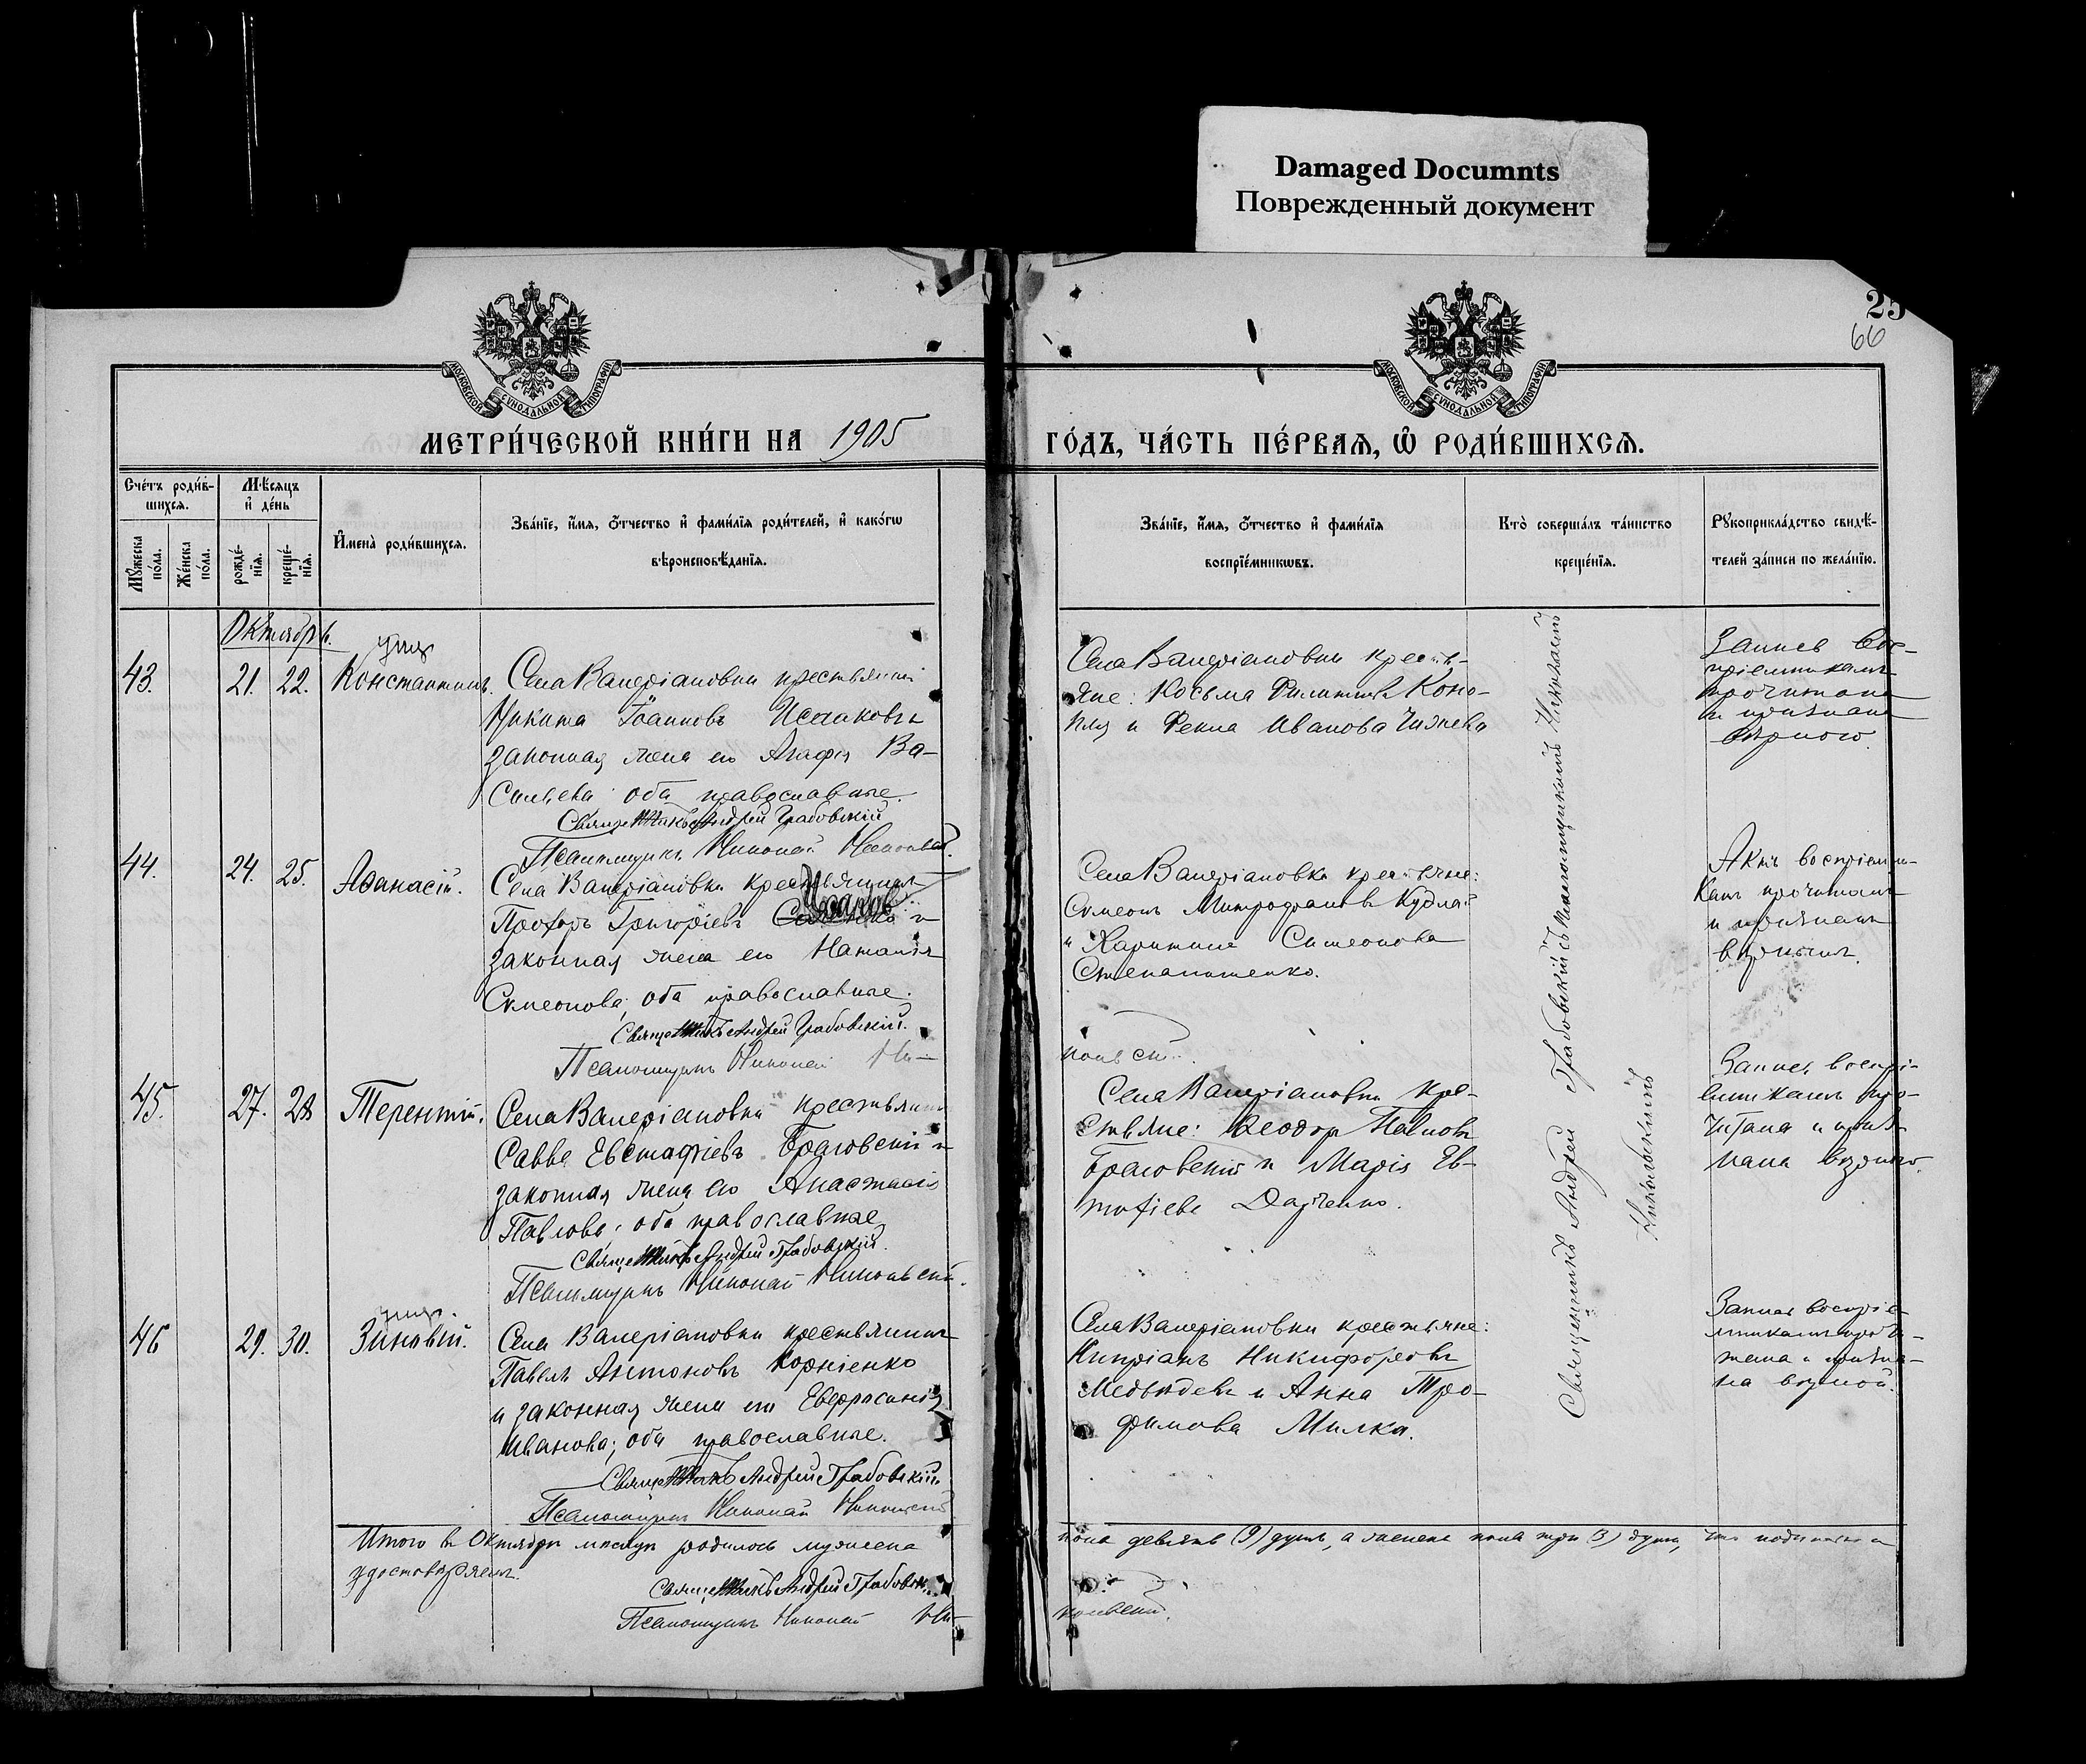 Damaged Documnts
Поврежденный документ
25
66
МОСКОВСКОЙ СѴНОДАЛЬНОЙ ТИПОГРАФІИ
МОСКОВСКОЙ СѴНОДАЛЬНОЙ ТИПОГРАФІИ
МЕТРИ́ЧЕСКОЙ КНИ́ГИ НА 1905
ГО́ДЪ, ЧА́СТЬ ПЕ́РВАѦ, Ѽ РОДИ́ВШИХСѦ.
Сче́тъ роди́в-
шихсѧ.
Мѣ́сѧцъ
и҆ де́нь
Мꙋ́жеска
по́ла.
Же́нска
по́ла.
рожде́-
нїѧ.
креще́-
нїѧ.
И҆мена̀ роди́вшихсѧ.
Зва́нїе, и҆́мѧ, ѻ҆́тчество и҆ фами́лїѧ роди́телей, и҆ како́гѡ
вѣроисповѣ́данїѧ.
Зва́нїе, и҆́мѧ, ѻ҆́тчество и҆ фами́лїѧ
воспрїе́мникѡвъ.
Кто̀ соверша́лъ та́инство
креще́нїѧ.
Рꙋкоприкла́дство свидѣ́-
телей за́писи по жела́нїю.
Октябрь.
43. 21. 22. Константинъ.
Села Валеріановки крестьянинъ
Никита Іоанновъ Исаковъ и
законная жена его Агафія Ва-
сильева оба православные.
Священникъ Андрей Грабовскій
Псаломщикъ Николай
Села Валеріановки кресть-
яне: Косьма Филипповъ Коно-
пля и Фекла Иванова
Запись вос-
пріемникамъ
прочитана
и признана
вѣрною.
44. 24. 25. Аѳанасій.
Села Валеріановки крестьянинъ
Прохоръ Григоріевъ и
законная жена его Наталія
Симеонова; оба православные.
Священникъ Андрей Грабовскій.
Псаломщикъ Николай Ни-
Села Валеріановки крестьяне:
Симеонъ Митрофановъ Кудлай
и Харитина Симеонова
Степаненко.
кольскій.
Актъ воспріемни-
камъ прочитанъ
и признанъ
вѣрнымъ.
45. 27. 28 Терентій.
Села Валеріановки крестьянинъ
Савва Евстафіевъ Браговскій и
законная жена его Анастасія
Павлова; оба православные
Священникъ Андрей Грабовскій.
Псаломщикъ Николай Никольскій.
Села Валеріановки кре-
стьяне: Ѳеодоръ Павловъ
Браговскій и Марія Ев-
тофіева
Запись воспрі-
емникамъ про-
читана и приз-
нана вѣрною.
46 29. 30. Зиновій.
Села Валеріановки крестьянинъ
Павелъ Антоновъ Корніенко
и законная жена его Евфросинія
Иванова; оба православные.
Священникъ Андрей Грабовскій.
Псаломщикъ Николай Никольскій
Села Валеріановки крестьяне:
Кипріанъ Никифоровъ
Медвѣдевъ и Анна Тро-
фимова Милка.
Запись воспріе-
мникамъ прочи-
тана и призна-
на вѣрной.
Священникъ Андрей Грабовскій съ псаломщикомъ Николаемъ
Никольскимъ
Итого въ Октябрѣ мѣсяцѣ родилось мужеска пола девять (9) душъ, а женска пола три (3) души, что подписью и
удостовѣряемъ.
Священникъ Андрей Грабовскій.
Псаломщикъ Николай Ни-
кольскій.